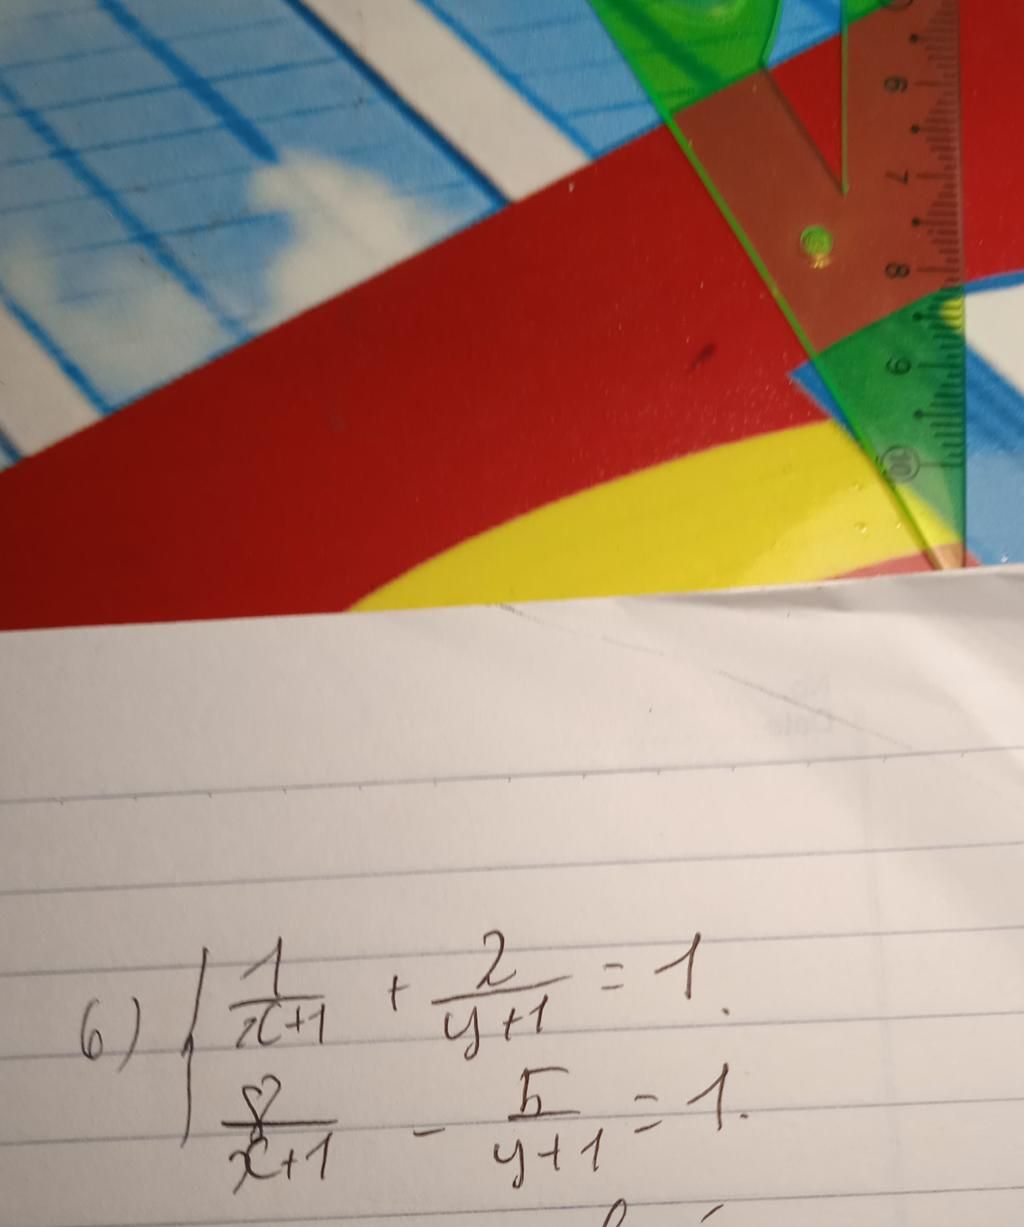 6
7
8
9
10
6) { 1/(x+1) + 2/(y+1) = 1.
8/(x+1) - 5/(y+1) = 1.